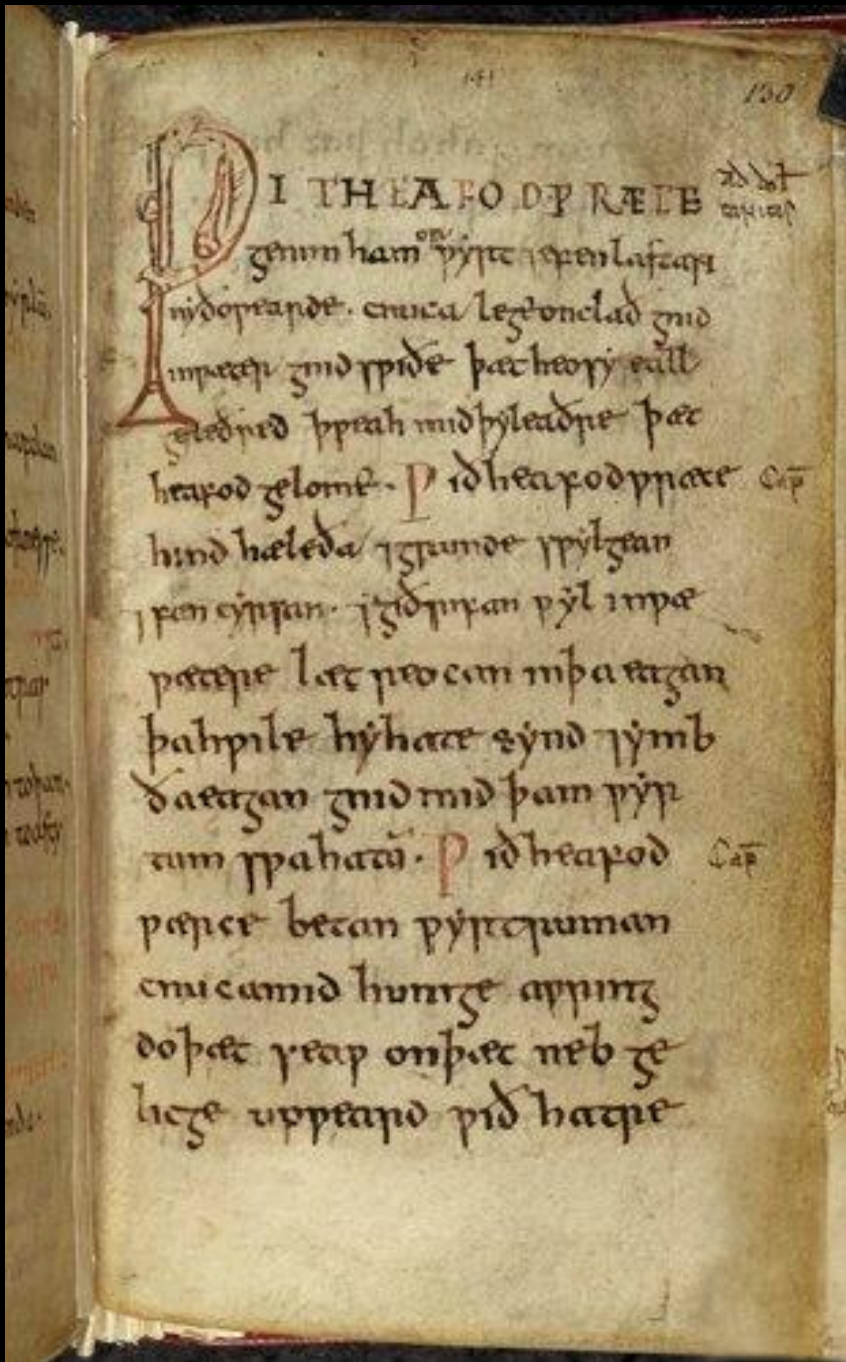 141
130
ǷIÐ HEAFODǷRÆCE
genim ham ƿyrt ⁊efenlastan
nyðoƿearde · cnuca lege onclað gnid
inƿæter gnid sƿiðe þæt heosy eall
geleðred þƿeah mid þyleaðre þæt
heafod gelome · Ƿið heafodƿræce Cap̄
hind hæleða ⁊grunde sƿylgean
⁊fen cyrsan · ⁊giðrifan ƿyl inƿæ
ƿætere læt reocan inþa eagan
þahƿile hyhate synd ⁊ymb
ða eagan gnid mid þam ƿyr
tum sƿahatū · Ƿið heafod Cap̄
ƿærce betan ƿyrtruman
cnuca mid hunige aƿring
do þæt seaƿ onþæt neb ge
licge upƿeard ƿið hatre